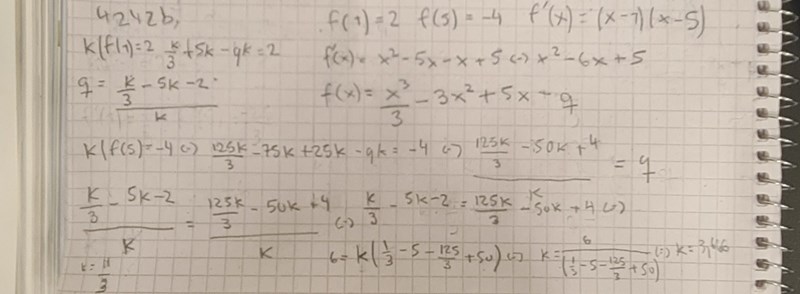 4242b,
f(1)=2 f(5)=-4 f'(x)=(x-1)(x-5)
k(f(1)=2 k/3+5k-qk=2
f'(x)=x²-5x-x+5 (-) x²-6x+5
q = (k/3-5k-2)/k
f(x)= x³/3 - 3x²+5x-q
k(f(5)=-4 (-) 125k/3 -75k+25k-qk=-4 (-) (125k/3 -50k+4)/k = q
(k/3-5k-2)/k = (125k/3-50k+4)/k (-) k/3-5k-2 = 125k/3 -50k+4 (-)
6=k(1/3-5-125/3+50) (-) k= 6/(1/3-5-125/3+50) (-)